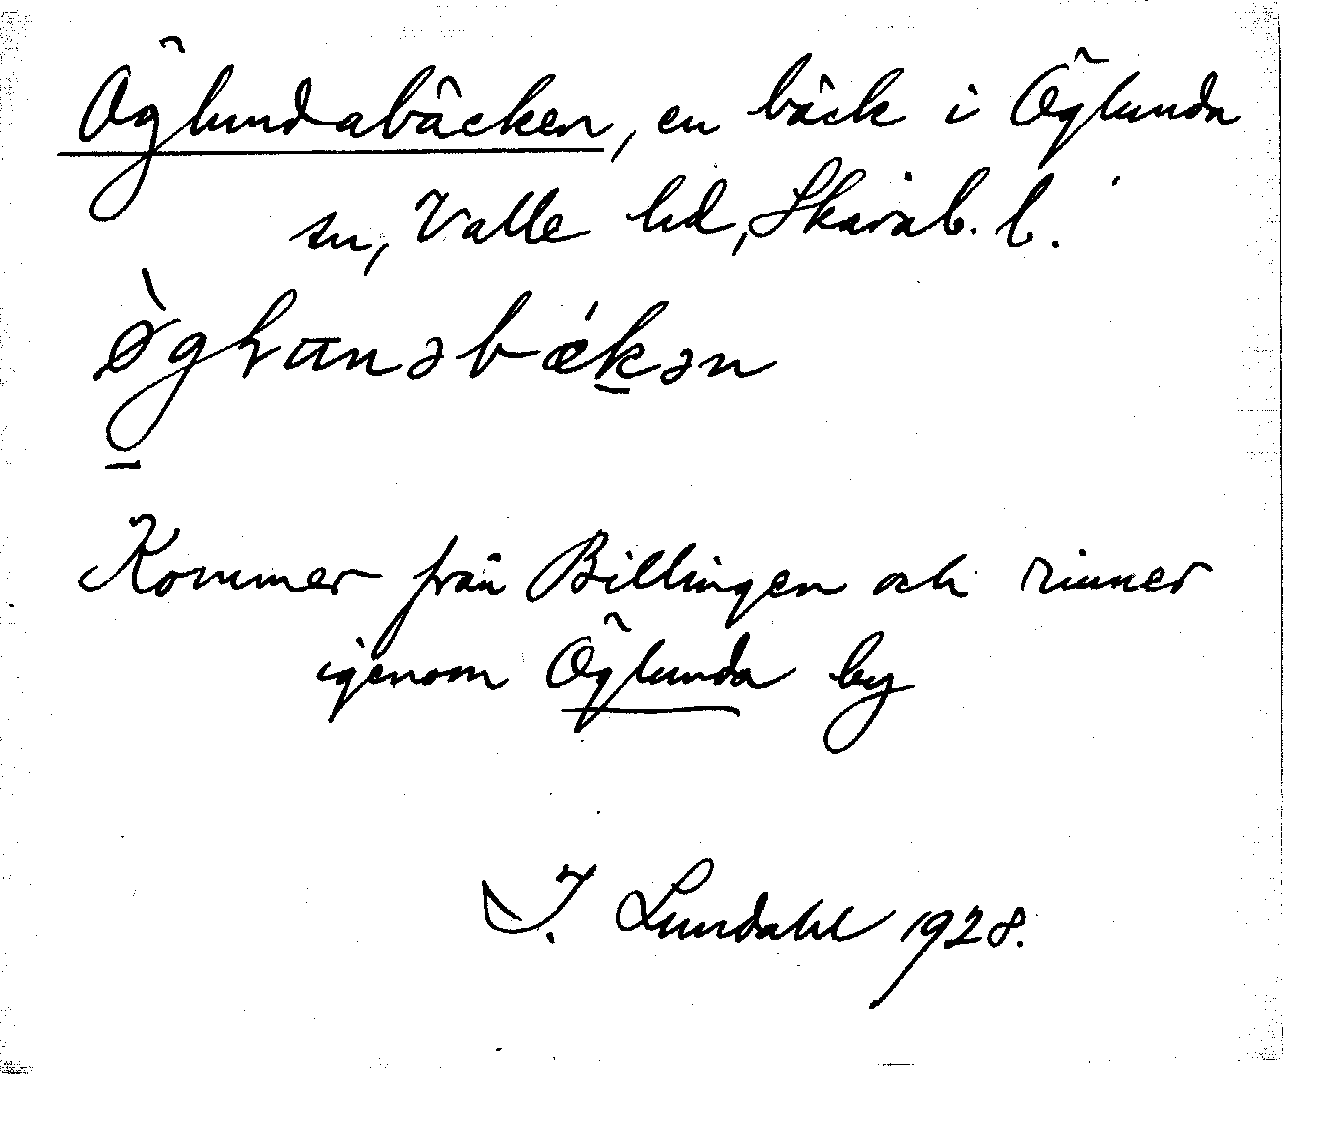 Öglundabäcken, en bäck i Öglunda
sn, Valle hd, Skarab. l.
Kommer från Billingen och rinner
igenom Öglunda by
I. Lundahl 1928.